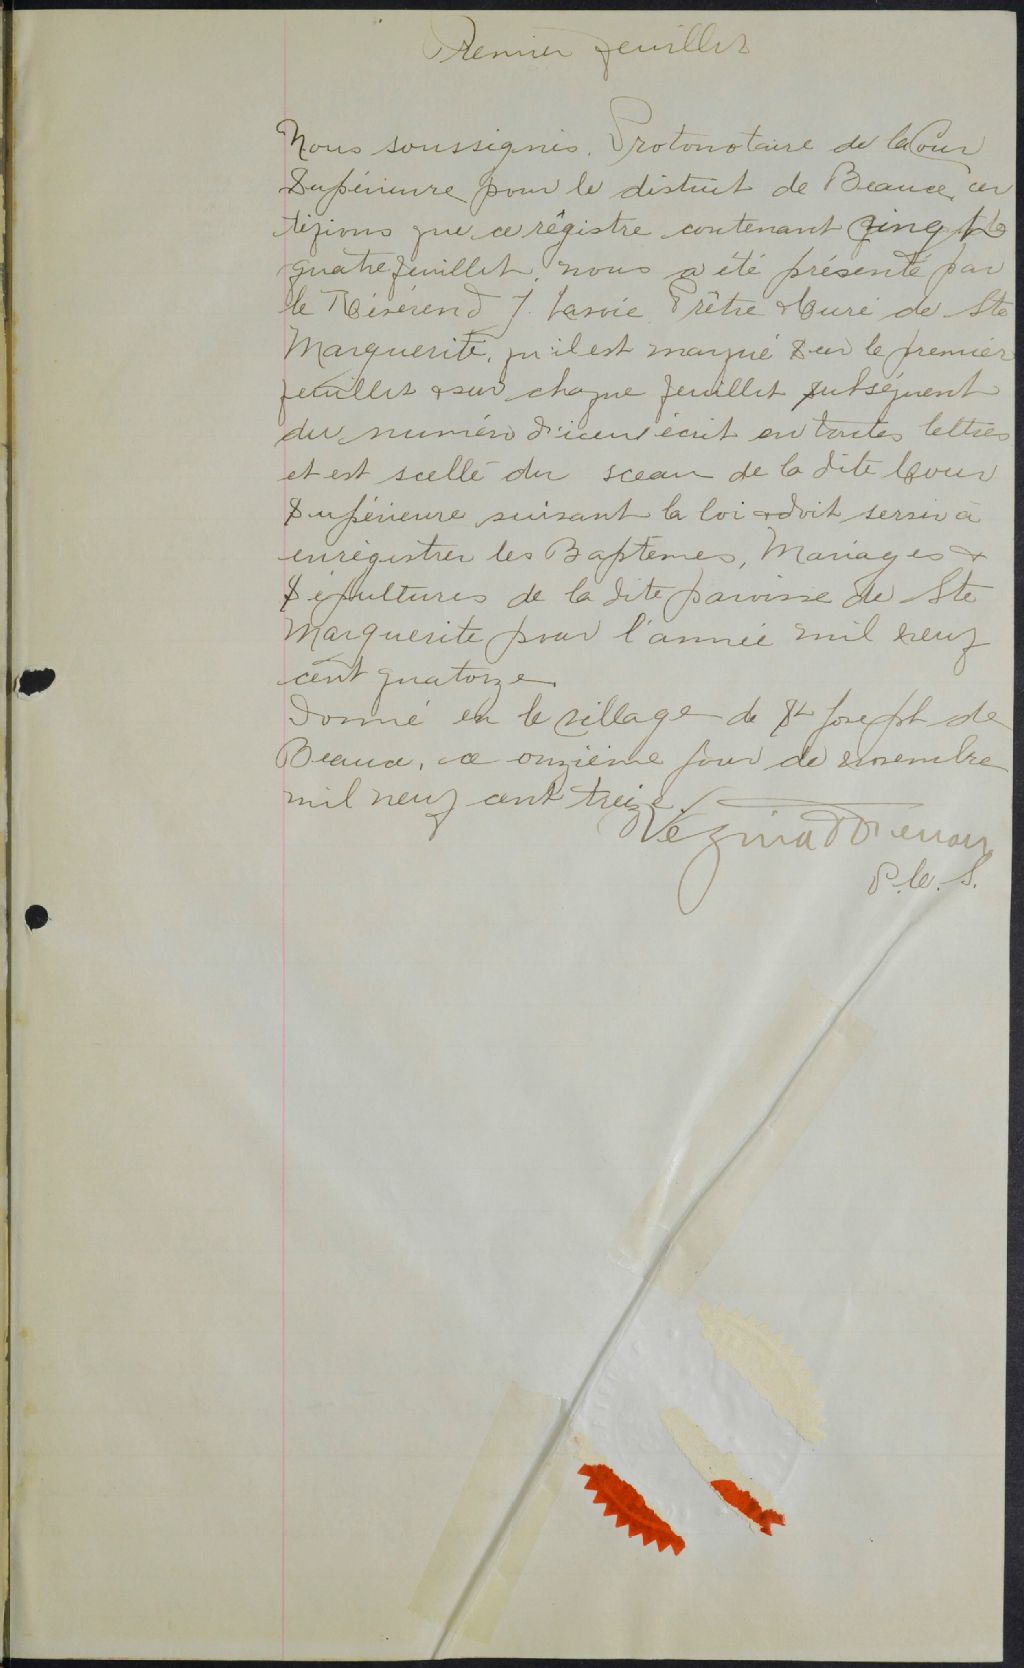 Premier feuillet
Nous soussignés. Protonotaire de la Cour
Supérieure pour le district de Beauce, cer
tifions que ce régistre contenant vingt
quatre feuillets, nous a été présenté par
le Révérend J. Lavoie Prêtre & Curé de Ste
Marguerite, qu'il est marqué sur le premier
feuillet & sur chaque feuillet subséquent
du numéro d'iceux écrit en toutes lettres
et est scellé du sceau de la dite Cour
Supérieure suivant la loi & doit servir à
enrégistrer les Baptemes, Mariages &
Sépultures de la dite paroisse de Ste
Marguerite pour l'année mil neuf
cent quatorze
Donné en le village de St Joseph de
Beauce, ce onzième jour de novembre
mil neuf cent treize.
Vézina
P. C. S.